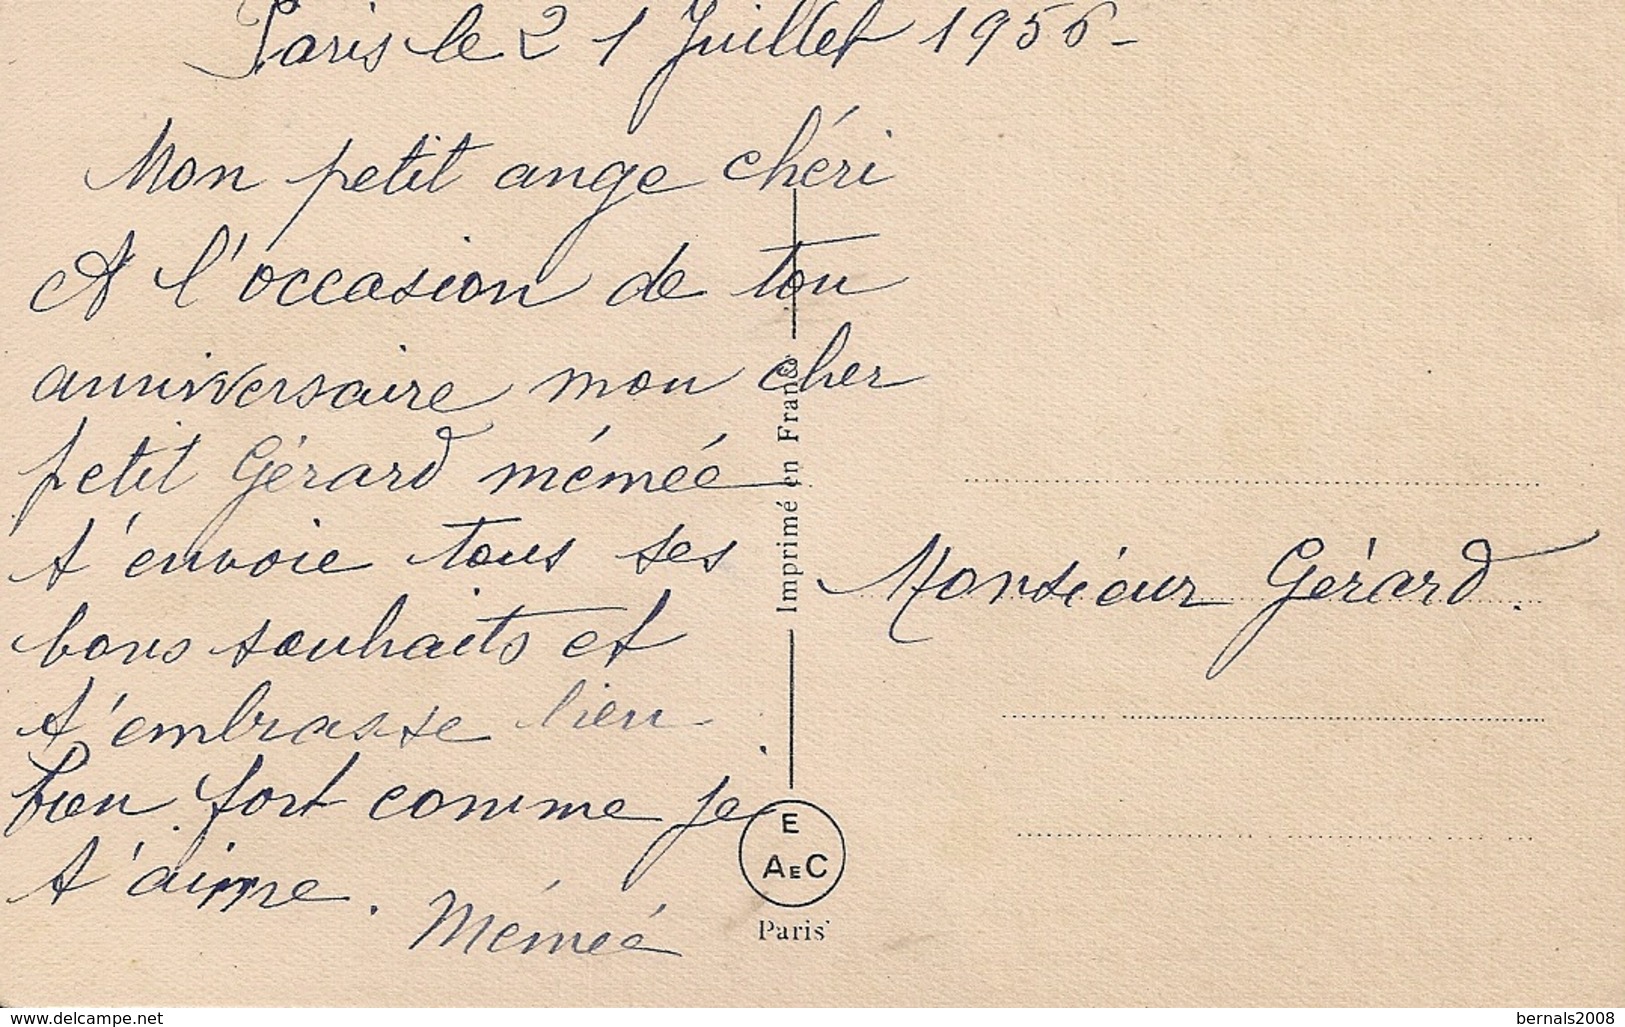 Paris le 21 Juillet 1956-
Mon petit ange chéri
A l'occasion de ton
anniversaire mon cher
petit Gérard mémée
t'envoie tous ses
bons souhaits et
t'embrasse bien
bien fort comme je
t'aime.
Mémée
Imprimé en France
Monsieur Gérard.
E
AEC
Paris
www.delcampe.net
bernals2008